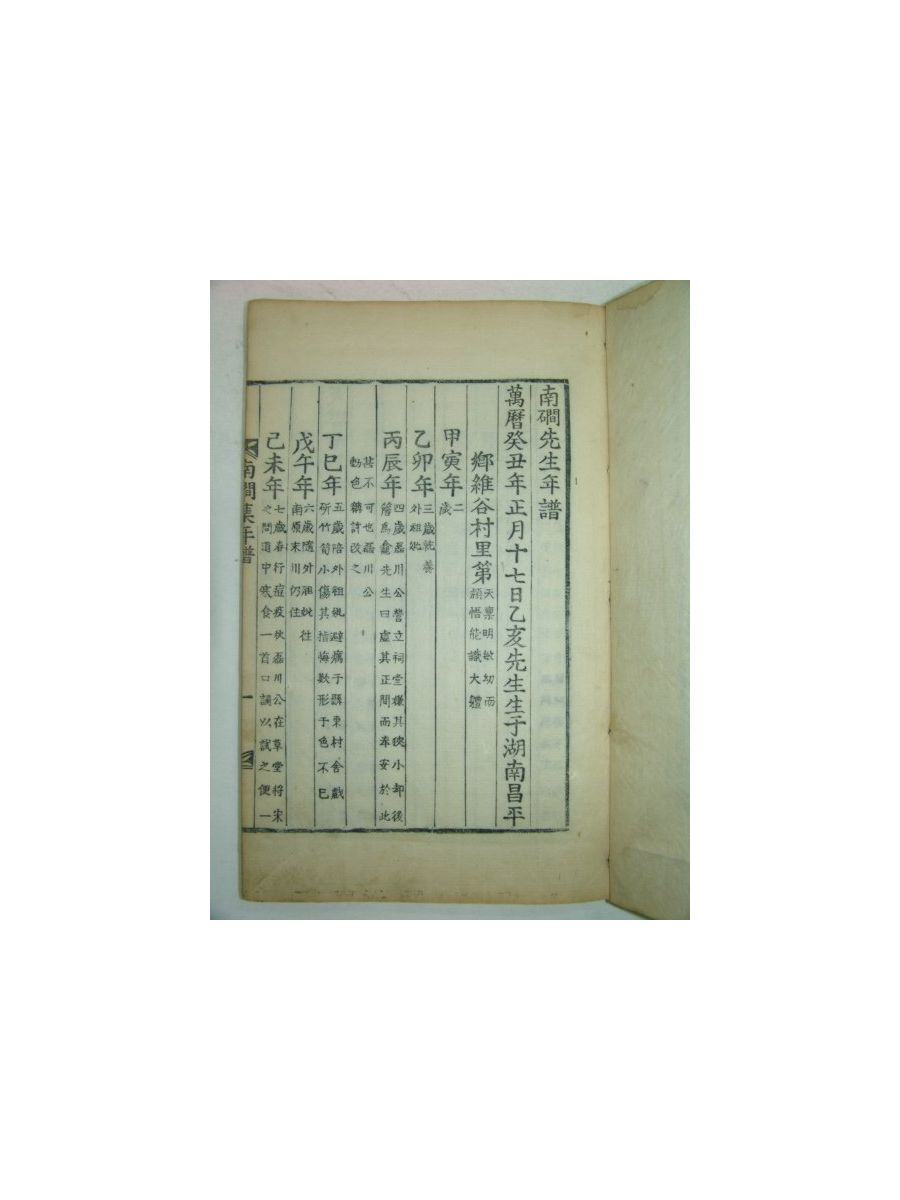 南磵先生年譜
萬曆癸丑年正月十七日乙亥先生生于湖南昌平
鄕維谷村里第天稟明敏幼而
穎悟能識大體
甲寅年二
歲
乙卯年三歲就養
外祖妣
丙辰年四歲磊川公嘗立祠堂嫌其狹小却後
簷爲龕先生曰虛其正間而奉安於此
甚不可也磊川公
動色稱許改之
丁巳年五歲陪外祖妣避癘于縣東村舍戱
斫竹筍小傷其指悔歎形于色不已
戊午年六歲隨外祖妣往
南原末川仍住
己未年七歲春行痘疫秋磊川公在草堂將宋
之問道中寒食一首口誦以試之便一
南磵集年譜
一